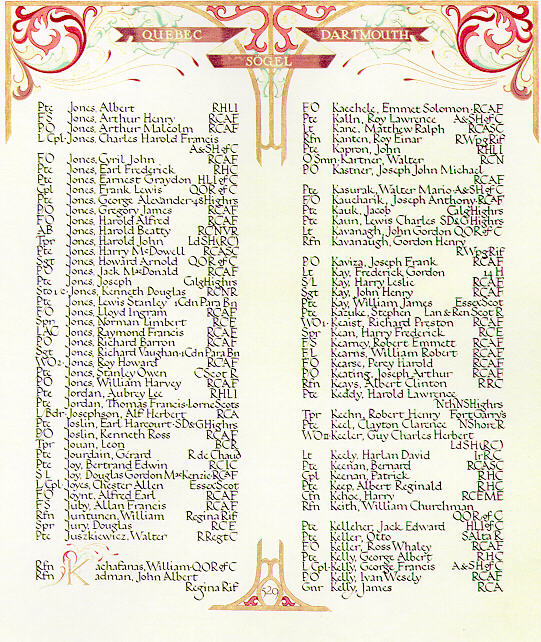 QUEBEC
DARTMOUTH
SÖGEL
Ptc Jones, Albert RHLI
FS Jones, Arthur Henry RCAF
PO Jones, Arthur Malcolm RCAF
L Cpl Jones, Charles Harold Francis
A&SH of C
FO Jones, Cyril John RCAF
Ptc Jones, Earl Frederick RHC
Ptc Jones, Earnest Graydon HLI of C
Cpl Jones, Frank Lewis QOR of C
Ptc Jones, George Alexander 48 Highrs
PO Jones, Gregory James RCAF
FO Jones, Harold Alfred RCAF
AB Jones, Harold Beatty RCNVR
Tpr Jones, Harold John LdSH(RC)
Ptc Jones, Harry McDowell RCASC
Sgt Jones, Howard Arnold QOR of C
PO Jones, Jack MacDonald RCAF
Ptc Jones, Joseph CalgHighrs
Sto1c Jones, Kenneth Douglas RCNR
Ptc Jones, Lewis Stanley 1CdnParaBn
FO Jones, Lloyd Ingram RCAF
Spr Jones, Norman Limbert RCE
LAC Jones, Raymond Francis RCAF
PO Jones, Richard Barron RCAF
Sgt Jones, Richard Vaughan 1CdnParaBn
WO2 Jones, Roy Howard RCAF
Ptc Jones, Stanley Owen CScotR
PO Jones, William Harvey RCAF
Ptc Jordan, Aubrey Lee RHLI
Ptc Jordan, Thomas Francis LorneScots
L Bdr Josephson, Alf Herbert RCA
Ptc Joslin, Earl Harcourt SD&GHighrs
PO Joslin, Kenneth Ross RCAF
Tpr Jouan, Leon BCR
Ptc Jourdain, Gérard R de Chaud
Ptc Joy, Bertrand Edwin RCIC
SL Joy, Douglas Gordon MacKenzie RCAF
L Cpl Joyes, Chester Allen EssexScot
FO Joynt, Alfred Earl RCAF
FS Juby, Allan Francis RCAF
Rfn Juntunen, William ReginaRif
Spr Jury, Douglas RCE
Ptc Juszkiewicz, Walter RRegtC
Rfn Kachafanas, William QOR of C
Rfn Kadman, John Albert
ReginaRif
FO Kaechele, Emmet Solomon RCAF
Ptc Kalln, Roy Lawrence A&SH of C
Lt Kane, Matthew Ralph RCASC
Rfn Kanten, Roy Einar RWpgRif
Ptc Kapron, John RHLI
O Smn Kartner, Walter RCN
PO Kastner, Joseph John Michael
RCAF
Ptc Kasurak, Walter Mario A&SH of C
FO Kaucharik, Joseph Anthony RCAF
Ptc Kauk, Jacob CalgHighrs
Ptc Kaun, Lewis Charles SD&GHighrs
Lt Kavanagh, John Gordon QOR of C
Rfn Kavanaugh, Gordon Henry
RWpgRif
PO Kaviza, Joseph Frank RCAF
Lt Kay, Frederick Gordon 14 H
SL Kay, Harry Leslie RCAF
Sgt Kay, John Henry RCAF
Ptc Kay, William James EssexScot
Ptc Kazuke, Stephen Lan&RenScotR
WO1 Keaist, Richard Preston RCAF
Spr Kean, Harry Frederick RCE
FS Kearney, Robert Emmett RCAF
FL Kearns, William Robert RCAF
FO Kearse, Percy Harold RCAF
PO Keating, Joseph Arthur RCAF
Rfn Keays, Albert Clinton RRC
Ptc Keddy, Harold Lawrence
NthNSHighrs
Tpr Keehn, Robert Henry FortGarrys
Ptc Keel, Clayton Clarence NShoreR
WO2 Keeler, Guy Charles Herbert
LdSH(RC)
Lt Keely, Harlan David IrRC
Ptc Keenan, Bernard RCASC
Cpl Keenan, Patrick RHC
Ptc Keep, Albert Reginald RHC
Cfn Kehoe, Harry RCEME
Rfn Keith, William Churchman
QOR of C
Ptc Kelleher, Jack Edward HLI of C
Ptc Keller, Otto SAltaR
FO Keller, Ross Whaley RCAF
Ptc Kelly, George Albert RHC
L Cpl Kelly, George Francis A&SH of C
PO Kelly, Ivan Wesely RCAF
Gnr Kelly, James RCA
529